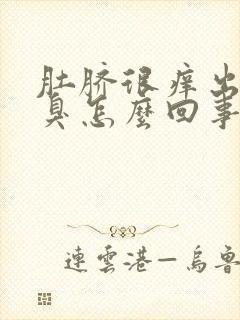 肚脐很痒出
臭怎麼回事
連雲港—烏魯